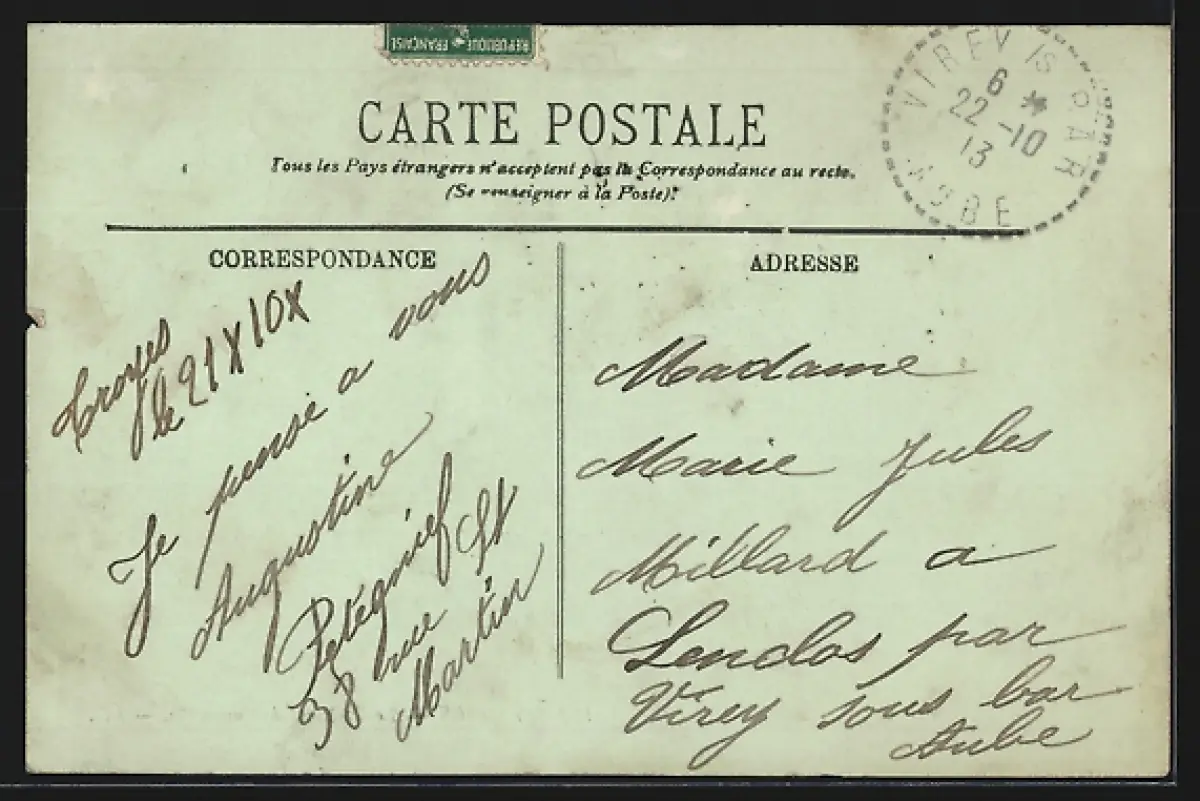 REPUBLIQUE FRANÇAISE
VIREY /S BAR
6 *
22 -10
13
AUBE
CARTE POSTALE
Tous les Pays étrangers n'acceptent pas la Correspondance au recto.
(Se renseigner à la Poste)
CORRESPONDANCE
Troyes
le 21 X 10 X
Je pense a vous
Augustine
Petégnief
38 rue St
Martin
ADRESSE
Madame
Marie Jules
Millard a
Lendos par
Virey sous bar
Aube